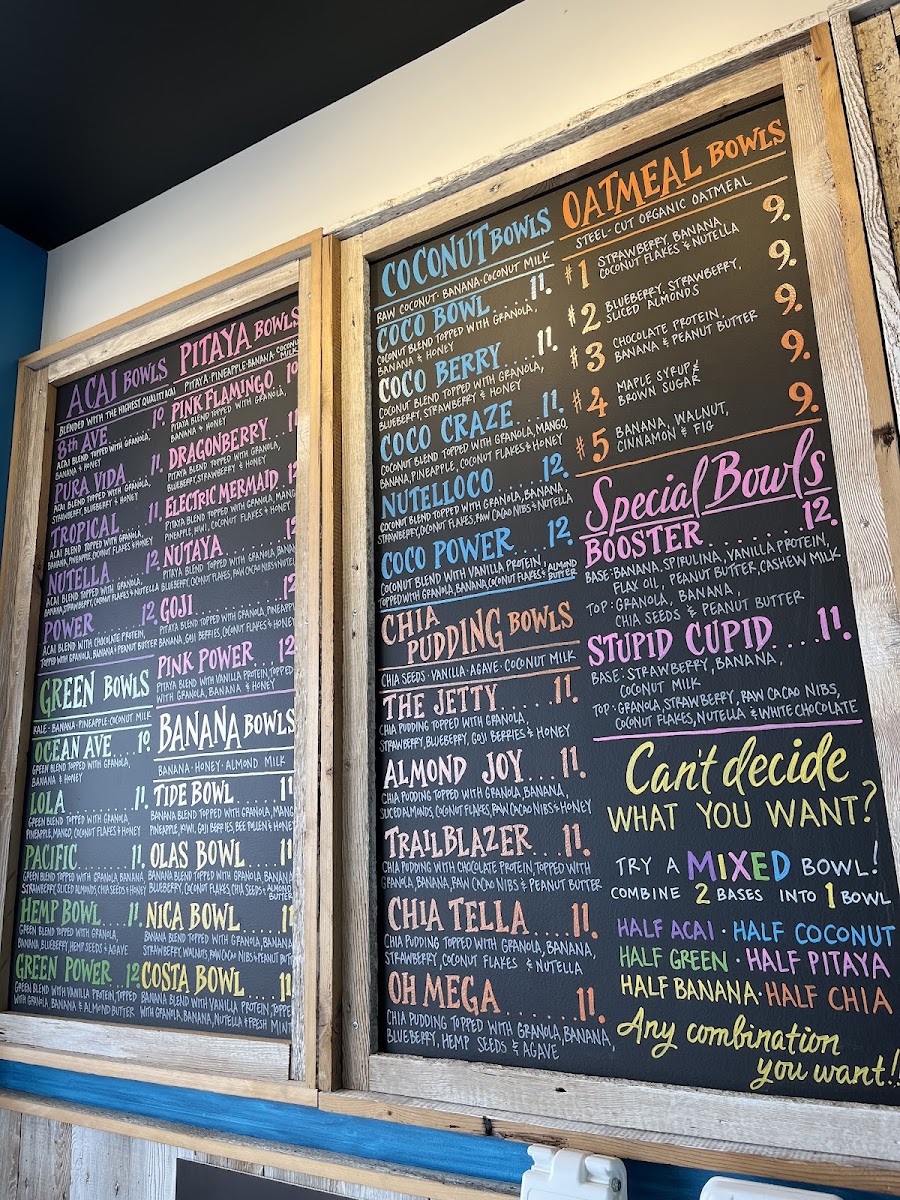 ACAI BOWLS
BLENDED WITH THE HIGHEST QUALITY ACAI
8th AVE. 10.
ACAI BLEND TOPPED WITH GRANOLA,
BANANA & HONEY
PURA VIDA 11.
ACAI BLEND TOPPED WITH GRANOLA,
STRAWBERRY, BLUEBERRY & HONEY
TROPICAL 11.
ACAI BLEND TOPPED WITH GRANOLA,
BANANA, PINEAPPLE, COCONUT FLAKES & HONEY
NUTELLA 12.
ACAI BLEND TOPPED WITH GRANOLA,
BANANA, STRAWBERRY, COCONUT FLAKES & NUTELLA
POWER 12.
ACAI BLEND WITH CHOCOLATE PROTEIN,
TOPPED WITH GRANOLA, BANANA & PEANUT BUTTER
GREEN BOWLS
KALE · BANANA · PINEAPPLE · COCONUT MILK
OCEAN AVE.... 10.
GREEN BLEND TOPPED WITH GRANOLA,
BANANA & HONEY
LOLA ........ 11.
GREEN BLEND TOPPED WITH GRANOLA,
PINEAPPLE, MANGO, COCONUT FLAKES & HONEY
PACIFIC ....... 11.
GREEN BLEND TOPPED WITH GRANOLA, BANANA,
STRAWBERRY, SLICED ALMONDS, CHIA SEEDS & HONEY
HEMP BOWL .... 11.
GREEN BLEND TOPPED WITH GRANOLA,
BANANA, BLUEBERRY, HEMP SEEDS & AGAVE
GREEN POWER .. 12.
GREEN BLEND WITH VANILLA PROTEIN, TOPPED
WITH GRANOLA, BANANA & ALMOND BUTTER
PITAYA BOWLS
PITAYA · PINEAPPLE · BANANA · COCONUT MILK
PINK FLAMINGO. 10
PITAYA BLEND TOPPED WITH GRANOLA,
BANANA & HONEY
DRAGONBERRY .. 11
PITAYA BLEND TOPPED WITH GRANOLA,
BLUEBERRY, STRAWBERRY & HONEY
ELECTRIC MERMAID. 12
PITAYA BLEND TOPPED WITH GRANOLA, MANGO
PINEAPPLE, KIWI, COCONUT FLAKES & HONEY
NUTAYA
PITAYA BLEND TOPPED WITH GRANOLA, BANANA
BLUEBERRY, COCONUT FLAKES, RAW CACAO NIBS & NUTELLA
GOJI ........ 12
PITAYA BLEND TOPPED WITH GRANOLA, PINEAPPLE
BANANA, GOJI BERRIES, COCONUT FLAKES & HONEY
PINK POWER... 12
PITAYA BLEND WITH VANILLA PROTEIN, TOPPED
WITH GRANOLA, BANANA & HONEY
BANANA BOWLS
BANANA · HONEY · ALMOND MILK
TIDE BOWL .... 11
BANANA BLEND TOPPED WITH GRANOLA, MANGO
PINEAPPLE, KIWI, GOJI BERRIES, BEE POLLEN & HONEY
OLAS BOWL .... 11
BANANA BLEND TOPPED WITH GRANOLA, BANANA,
BLUEBERRY, COCONUT FLAKES, CHIA SEEDS & ALMOND BUTTER
NICA BOWL .... 11
BANANA BLEND TOPPED WITH GRANOLA, BANANA
STRAWBERRY, WALNUTS, RAW CACAO NIBS & PEANUT BUTTER
COSTA BOWL .... 11
BANANA BLEND WITH VANILLA PROTEIN, TOPPED
WITH GRANOLA, BANANA, NUTELLA & FRESH MINT
COCONUT BOWLS
RAW COCONUT · BANANA · COCONUT MILK
COCO BOWL .... 11.
COCONUT BLEND TOPPED WITH GRANOLA,
BANANA & HONEY
COCO BERRY .... 11.
COCONUT BLEND TOPPED WITH GRANOLA,
BLUEBERRY, STRAWBERRY & HONEY
COCO CRAZE ... 11.
COCONUT BLEND TOPPED WITH GRANOLA, MANGO,
BANANA, PINEAPPLE, COCONUT FLAKES & HONEY
NUTELLOCO 12.
COCONUT BLEND TOPPED WITH GRANOLA, BANANA,
STRAWBERRY, COCONUT FLAKES, RAW CACAO NIBS & NUTELLA
COCO POWER ... 12.
COCONUT BLEND WITH VANILLA PROTEIN,
TOPPED WITH GRANOLA, BANANA, COCONUT FLAKES & ALMOND BUTTER
CHIA
PUDDING BOWLS
CHIA SEEDS · VANILLA · AGAVE · COCONUT MILK
THE JETTY .... 11.
CHIA PUDDING TOPPED WITH GRANOLA,
STRAWBERRY, BLUEBERRY, GOJI BERRIES & HONEY
ALMOND JOY ... 11.
CHIA PUDDING TOPPED WITH GRANOLA, BANANA,
SLICED ALMONDS, COCONUT FLAKES, RAW CACAO NIBS & HONEY
TRAILBLAZER ... 11.
CHIA PUDDING WITH CHOCOLATE PROTEIN, TOPPED WITH
GRANOLA, BANANA, RAW CACAO NIBS & PEANUT BUTTER
CHIA TELLA .... 11.
CHIA PUDDING TOPPED WITH GRANOLA, BANANA,
STRAWBERRY, COCONUT FLAKES & NUTELLA
OH MEGA ...... 11.
CHIA PUDDING TOPPED WITH GRANOLA, BANANA,
BLUEBERRY, HEMP SEEDS & AGAVE
OATMEAL BOWLS
STEEL-CUT ORGANIC OATMEAL
#1 STRAWBERRY, BANANA, 9.
COCONUT FLAKES & NUTELLA
#2 BLUEBERRY, STRAWBERRY, 9.
SLICED ALMONDS
#3 CHOCOLATE PROTEIN, 9.
BANANA & PEANUT BUTTER
#4 MAPLE SYRUP & 9.
BROWN SUGAR
#5 BANANA, WALNUT, 9.
CINNAMON & FIG
Special Bowls
BOOSTER ........ 12.
BASE: BANANA, SPIRULINA, VANILLA PROTEIN,
FLAX OIL, PEANUT BUTTER, CASHEW MILK
TOP: GRANOLA, BANANA,
CHIA SEEDS & PEANUT BUTTER
STUPID CUPID .... 11.
BASE: STRAWBERRY, BANANA,
COCONUT MILK
TOP: GRANOLA, STRAWBERRY, RAW CACAO NIBS,
COCONUT FLAKES, NUTELLA & WHITE CHOCOLATE
Can't decide
WHAT YOU WANT?
TRY A MIXED BOWL!
COMBINE 2 BASES INTO 1 BOWL
HALF ACAI · HALF COCONUT
HALF GREEN · HALF PITAYA
HALF BANANA · HALF CHIA
Any combination
you want!!